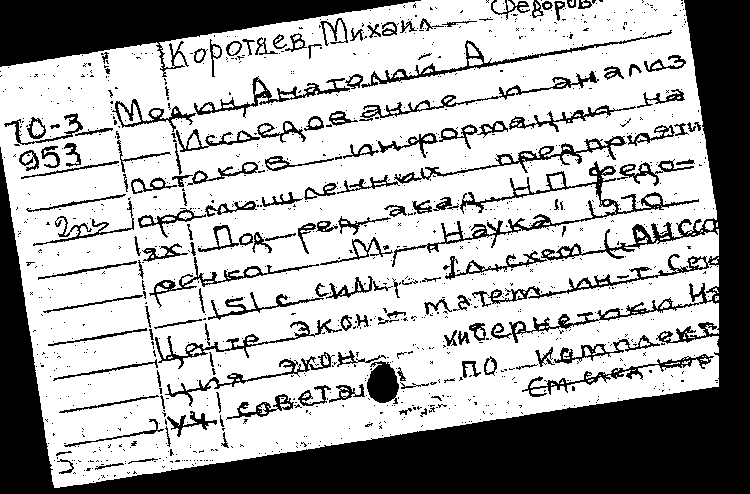 Коротяев, Михаил Федоров
Модин, Анатолий А
70-3
953
Исследование и анализ
потоков информации на
промышленных предприяти
2пз
ях Под ред. акад. Н.П Федо-
ренко. М., „Наука", 1970
151 с силл., 1л. схем (АНССС
Центр экон.- матем. ин-т. Сек
ция экон. кибернетики На
уч совета по комплект
См. след. кар
5